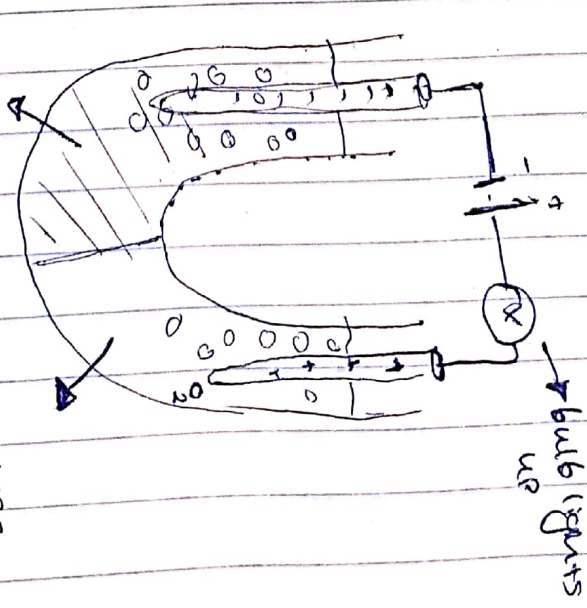 bulb lights
up